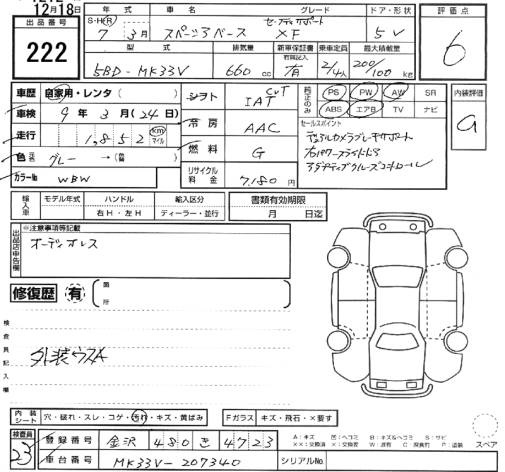 12月18日
出品番号
222
年式 車名 グレード ドア・形状
S・H・R 7年 3月 スペーシアベース XF 5V
セーフティサポート
型式 排気量 新車保証書 乗車定員 最大積載量
5BD-MK33V 660cc 有 2/4人 200/100kg
有(記録簿)
評価点
6
車歴 自家用・レンタ( )
車検 9年 3月(24日)
走行 1,852 km マイル
色 元色 グレー →(替 )
カラーNo WBW
シフト CVT IAT
冷房 AAC
燃料 G
リサイクル料金 7,180円
純正のみ
PS PW AW SR
ABS エアB TV ナビ
セールスポイント
デュアルカメラブレーキサポート
右パワースライドドア
アダプティブクルーズコントロール
内装評価
A
輸入車 モデル年式 ハンドル 輸入区分
右H・左H ディーラー・並行
書類有効期限
月 日迄
出品店申告欄
※注意事項等記載
オーディオレス
修復歴 有 箇所
検査員記入欄
外装ウスA
内装シート 穴・破れ・スレ・コゲ・汚れ・キズ・黄ばみ
Fガラス キズ・飛石・×要す
検査員
23
登録番号 金沢 480 き 4723
車台番号 MK33V-207340
シリアルNo
A:キズ U:ヘコミ B:キズ&ヘコミ S:サビ
××:交換済 ×:交換要 W:波有 C:腐食 P:塗装
スペア